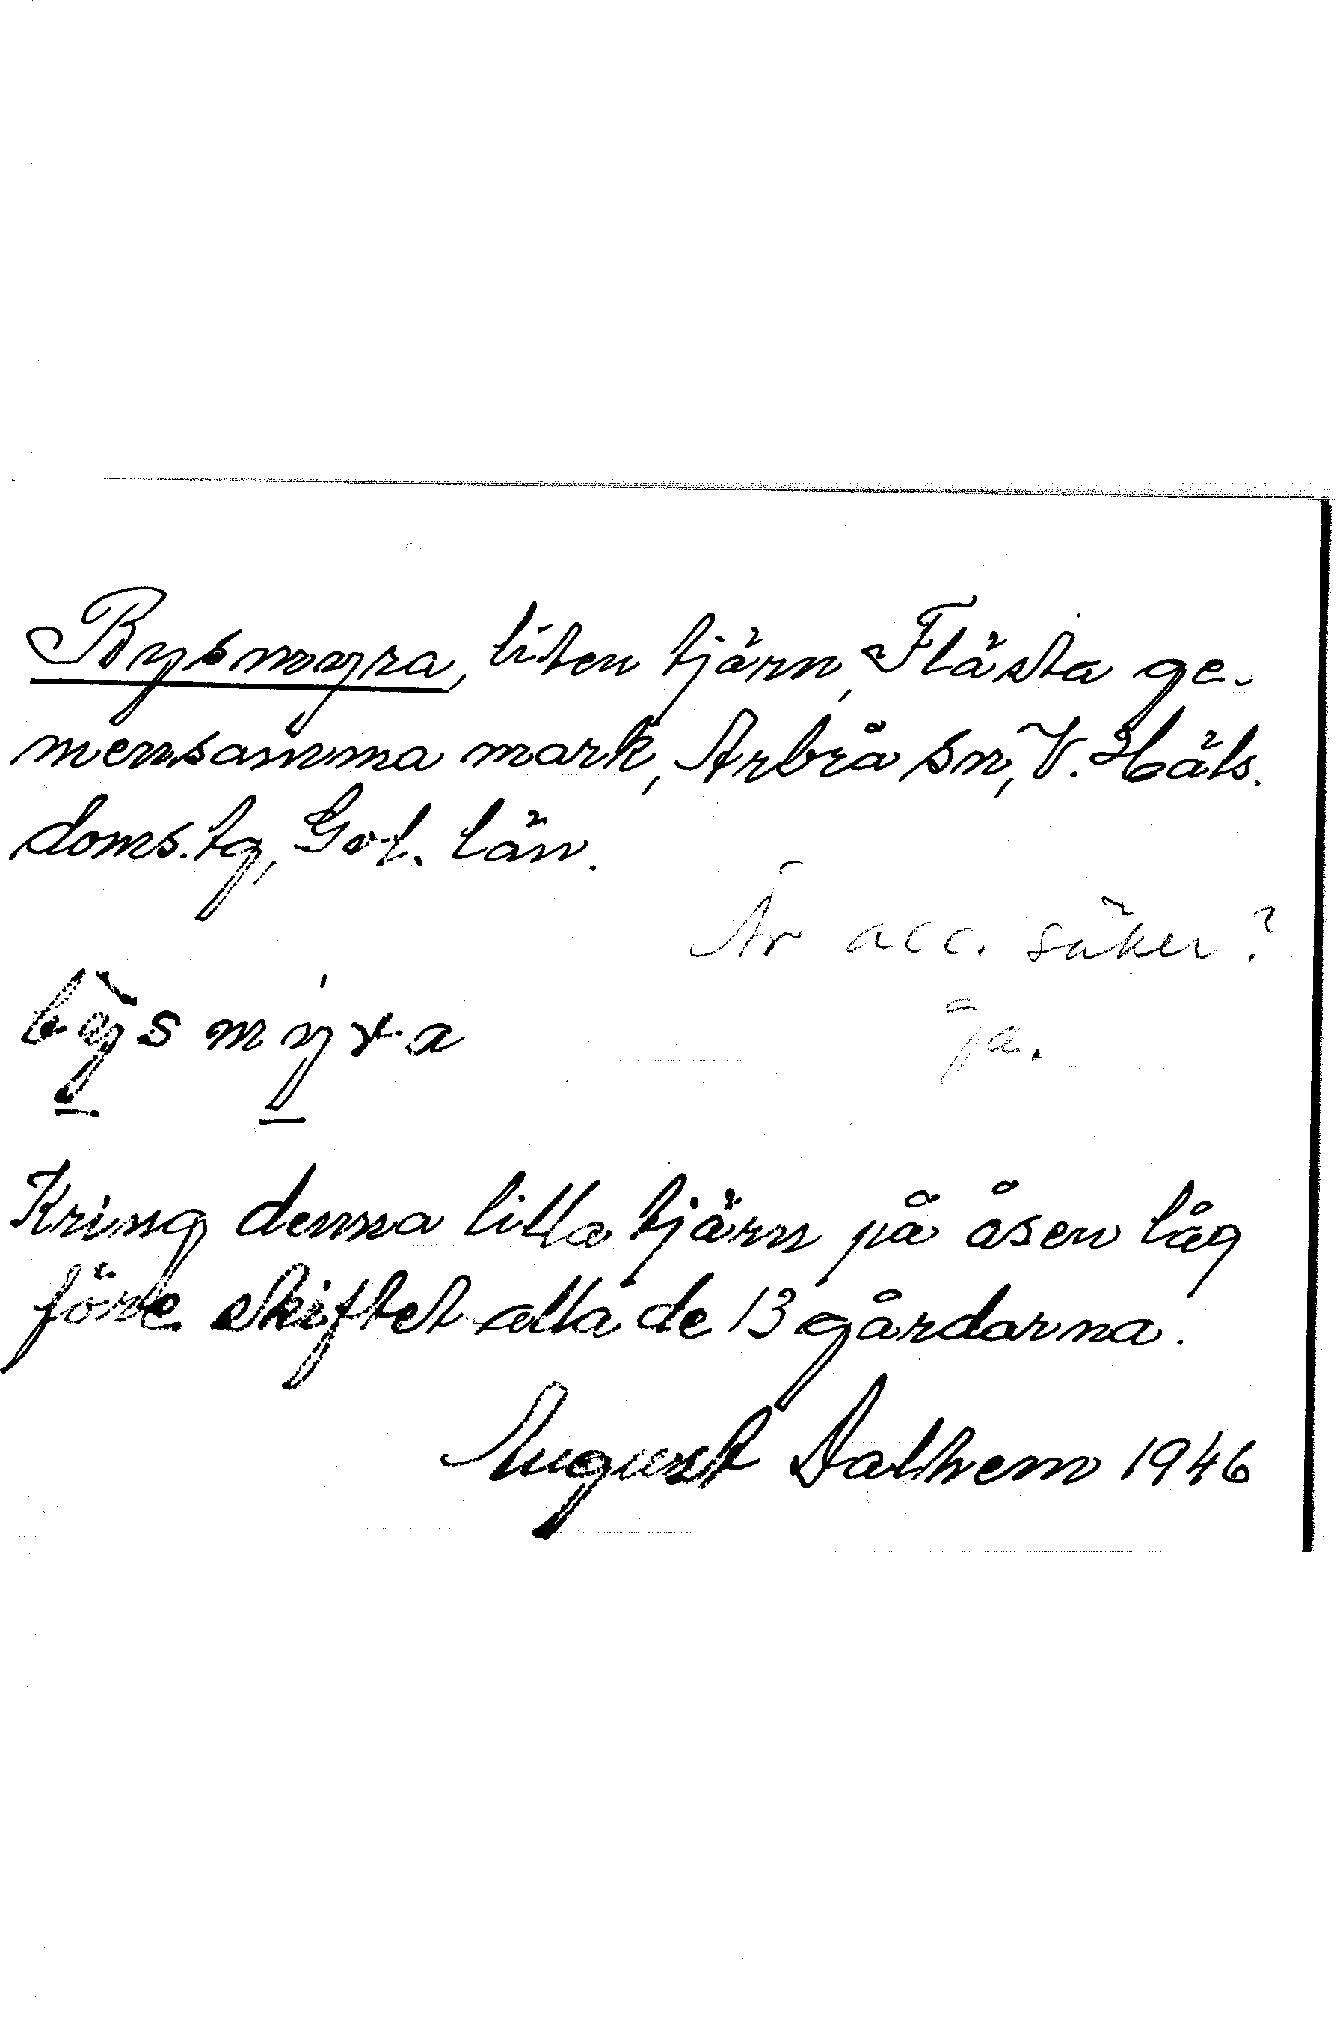 Bysmyra, liten tjärn, Flästa ge-
mensamma mark, Arbrå sn, V. Häls.
doms.tg, Gvl. län.
Är acc. säker?
bỳsmýra
Ja.
Kring denna lilla tjärn på åsen låg
före skiftet alla de 13 gårdarna.
August Dalhem 1946